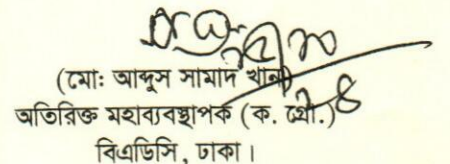 (মোঃ আব্দুস সামাদ খান)
অতিরিক্ত মহাব্যবস্থাপক (ক. গ্রো.)
বিএডিসি, ঢাকা।